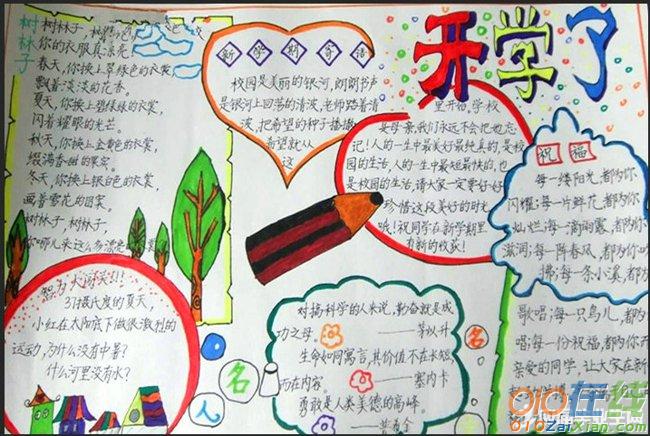 开学了
树林子
树林子,树林子
你的衣服真漂亮
春天,你换上翠绿色的衣裳
飘着淡淡的花香。
夏天,你换上碧绿绿的衣裳
闪着耀眼的光芒。
秋天,你换上金黄色的衣裳
缀满香甜的果实。
冬天,你换上银白色的衣裳
画着雪花的图案。
树林子,树林子,
你哪儿来这么多漂亮
新学期寄语
校园是美丽的银河,朗朗书声
是银河上回荡的清波,老师踏着清
波,把希望的种子播撒
希望就从
这
里开始,学校
是母亲,我们永远不会把她忘
记!人的一生中最美好最纯真的,是校
园的生活,人的一生中最短最快的,也
是校园的生活,请大家一定要好好
珍惜这段美好的时光
哦!祝同学在新学期里
有新的收获!
祝福
每一缕阳光,都为你
闪耀;每一片鲜花,都为你
灿烂;每一滴雨露,都为你
滋润;每一阵春风,都为你吹
拂;每一条小溪,都为
歌唱;每一只鸟儿,都为
唱;每一份祝福,都为你开
亲爱的同学,让大家在新
37摄氏度的夏天,
小红在太阳底下做很激烈的
运动,为什么没有中暑?
什么河里没有水?
名人名
对搞科学的人来说,勤奋就是成
功之母
——茅以升
生命如同寓言,其价值不在长短
而在内容。——塞内卡
勇敢是人类美德的高峰
普希金
010在线
010ZaiXian.com